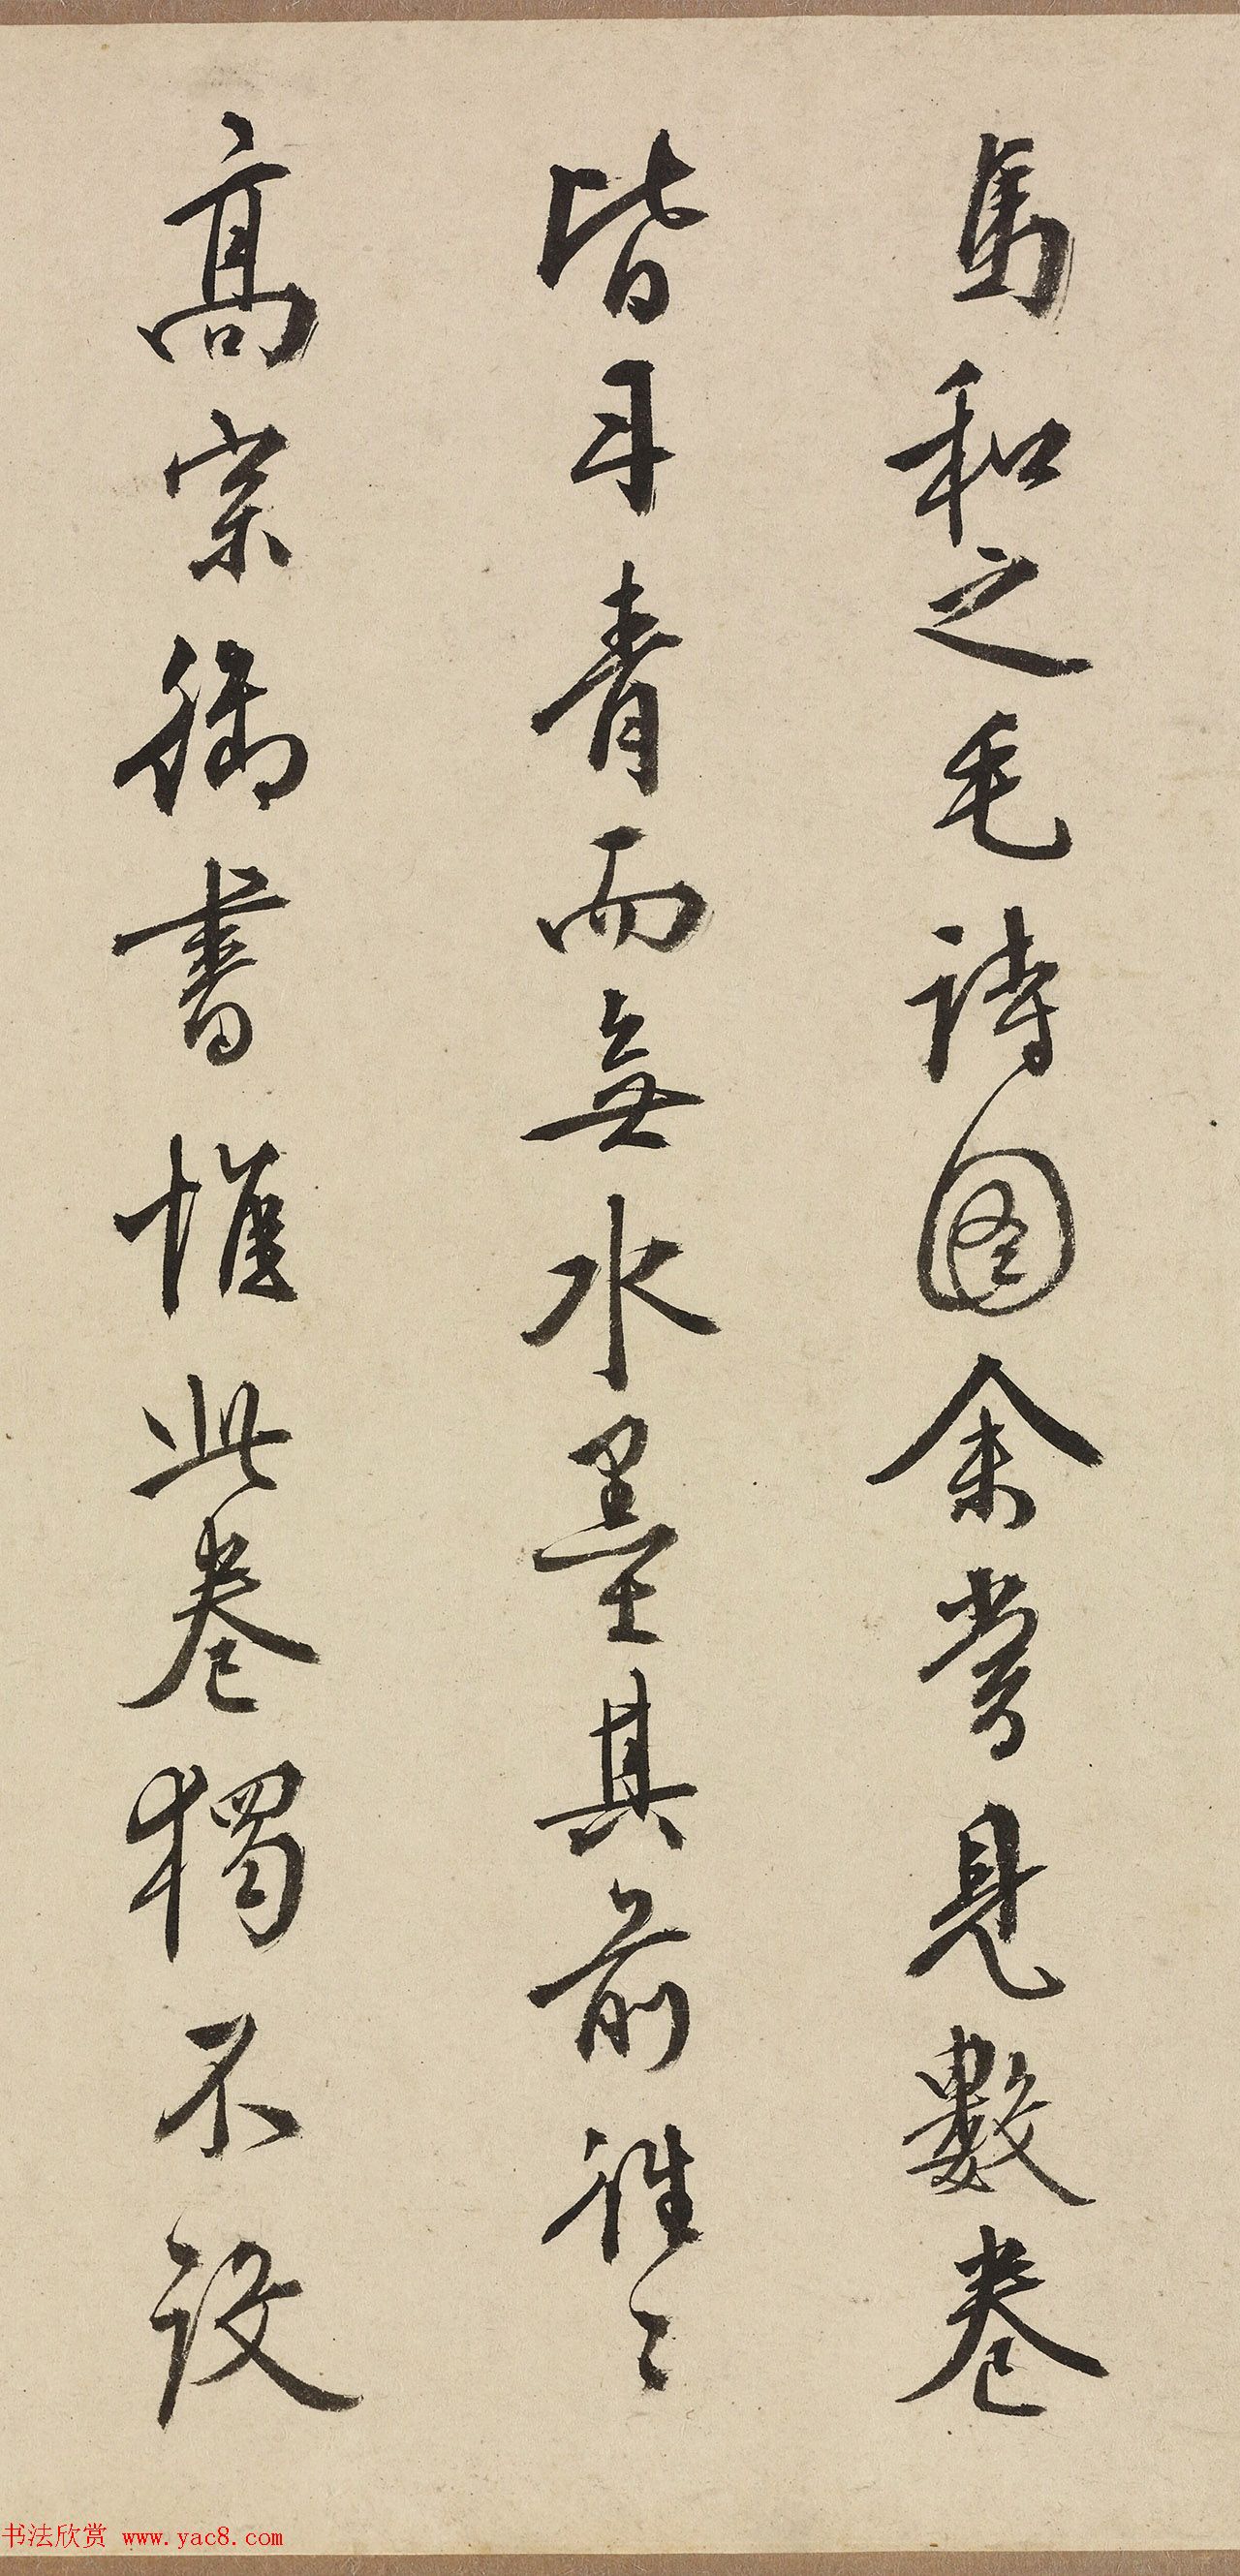 馬和之毛詩圖余嘗見數卷
皆丹青而無水墨其前往々
高宗御書惟此卷獨不設
书法欣赏 www.yac8.com